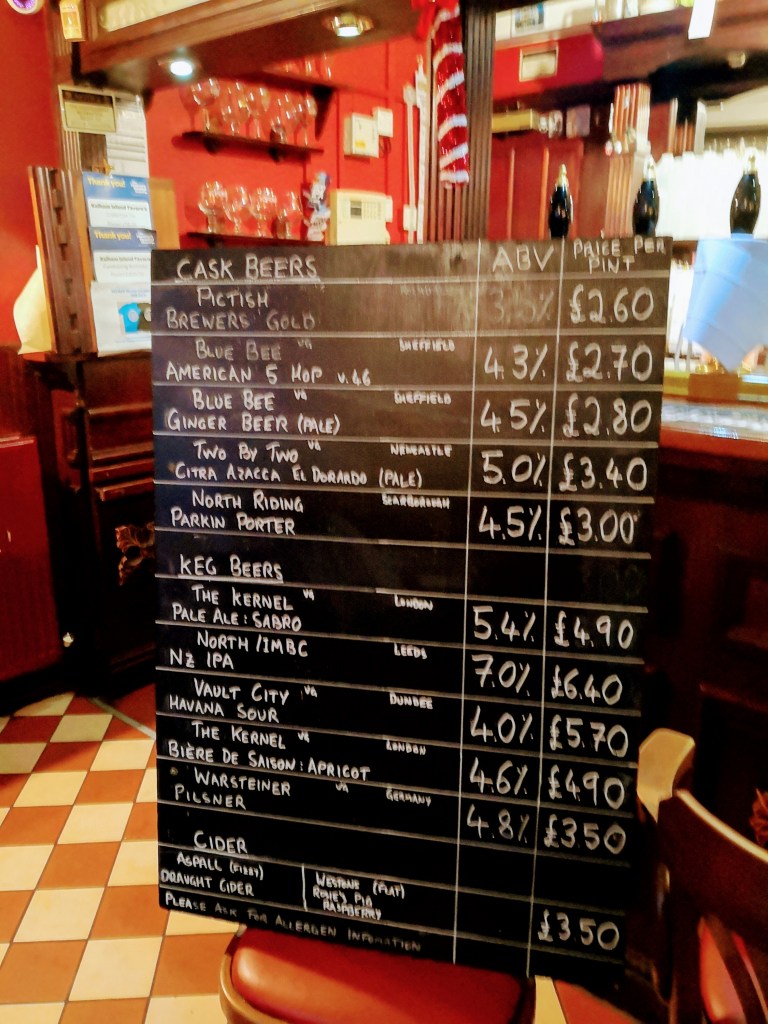 Thank you!
Kelham Island Tavern
Thank you!
Kelham Island Tavern
CASK BEERS ABV PRICE PER PINT
PICTISH
BREWERS GOLD £2.60
BLUE BEE VG SHEFFIELD
AMERICAN 5 HOP v.46 4.3% £2.70
BLUE BEE VG SHEFFIELD
GINGER BEER (PALE) 4.5% £2.80
TWO BY TWO VG NEWCASTLE
CITRA AZACCA EL DORARDO (PALE) 5.0% £3.40
NORTH RIDING SCARBOROUGH
PARKIN PORTER 4.5% £3.00
KEG BEERS
THE KERNEL VG LONDON
PALE ALE: SABRO 5.4% £4.90
NORTH/IMBC LEEDS
NZ IPA 7.0% £6.40
VAULT CITY VG DUNDEE
HAVANA SOUR 4.0% £5.70
THE KERNEL VG LONDON
BIÈRE DE SAISON: APRICOT 4.6% £4.90
WARSTEINER VG GERMANY
PILSNER 4.8% £3.50
CIDER
ASPALL (FIZZY)
DRAUGHT CIDER
WESTONS (FLAT)
ROSIE'S PIG
RASPBERRY
£3.50
PLEASE ASK FOR ALLERGEN INFOMATION